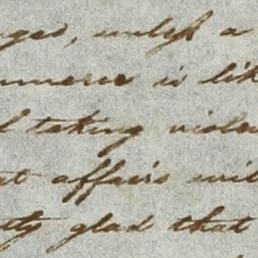 nged, unless a
mmerce is lik
l taking violen
at affairs will
ty glad that